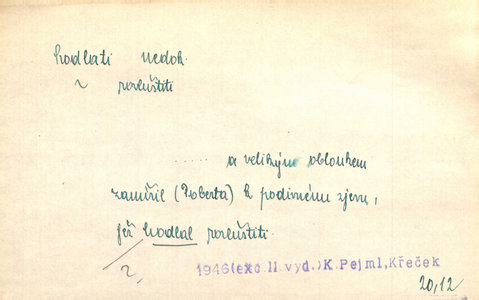 hodlati nedok.
~ rozluštiti
..... a velikým obloukem
zamířil (Roberta) k podivnému zjevu,
jež hodlal rozluštiti.
1946(exc.II.vyd.)K.Pejml,Křeček
20,12